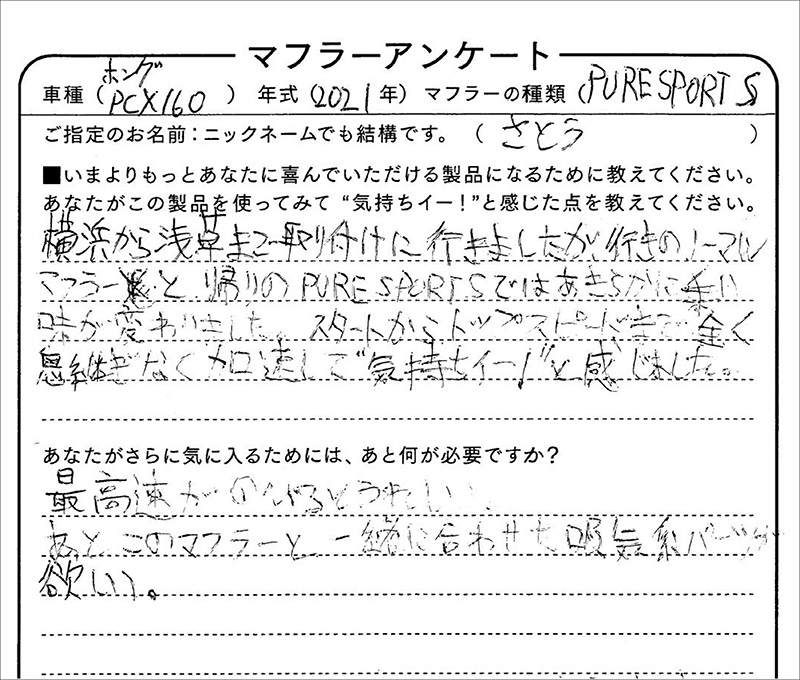 マフラーアンケート
ホンダ
車種（PCX160）年式（2021年）マフラーの種類（PURE SPORT S
ご指定のお名前：ニックネームでも結構です。（さとう）
■いまよりもっとあなたに喜んでいただける製品になるために教えてください。
あなたがこの製品を使ってみて“気持ちイー！”と感じた点を教えてください。
横浜から浅草まで取り付けに行きましたが、行きのノーマル
マフラーと帰りのPURE SPORT Sではあきらかに乗り
味が変わりました。スタートからトップスピードまで全く
息継ぎなく加速して“気持ちイー！”と感じました。
あなたがさらに気に入るためには、あと何が必要ですか？
最高速がのびるとうれしい
あと、このマフラーと一緒に合わせた吸気系パーツが
欲しい。